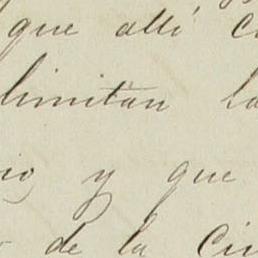 que allí
limitan la
y que
de la